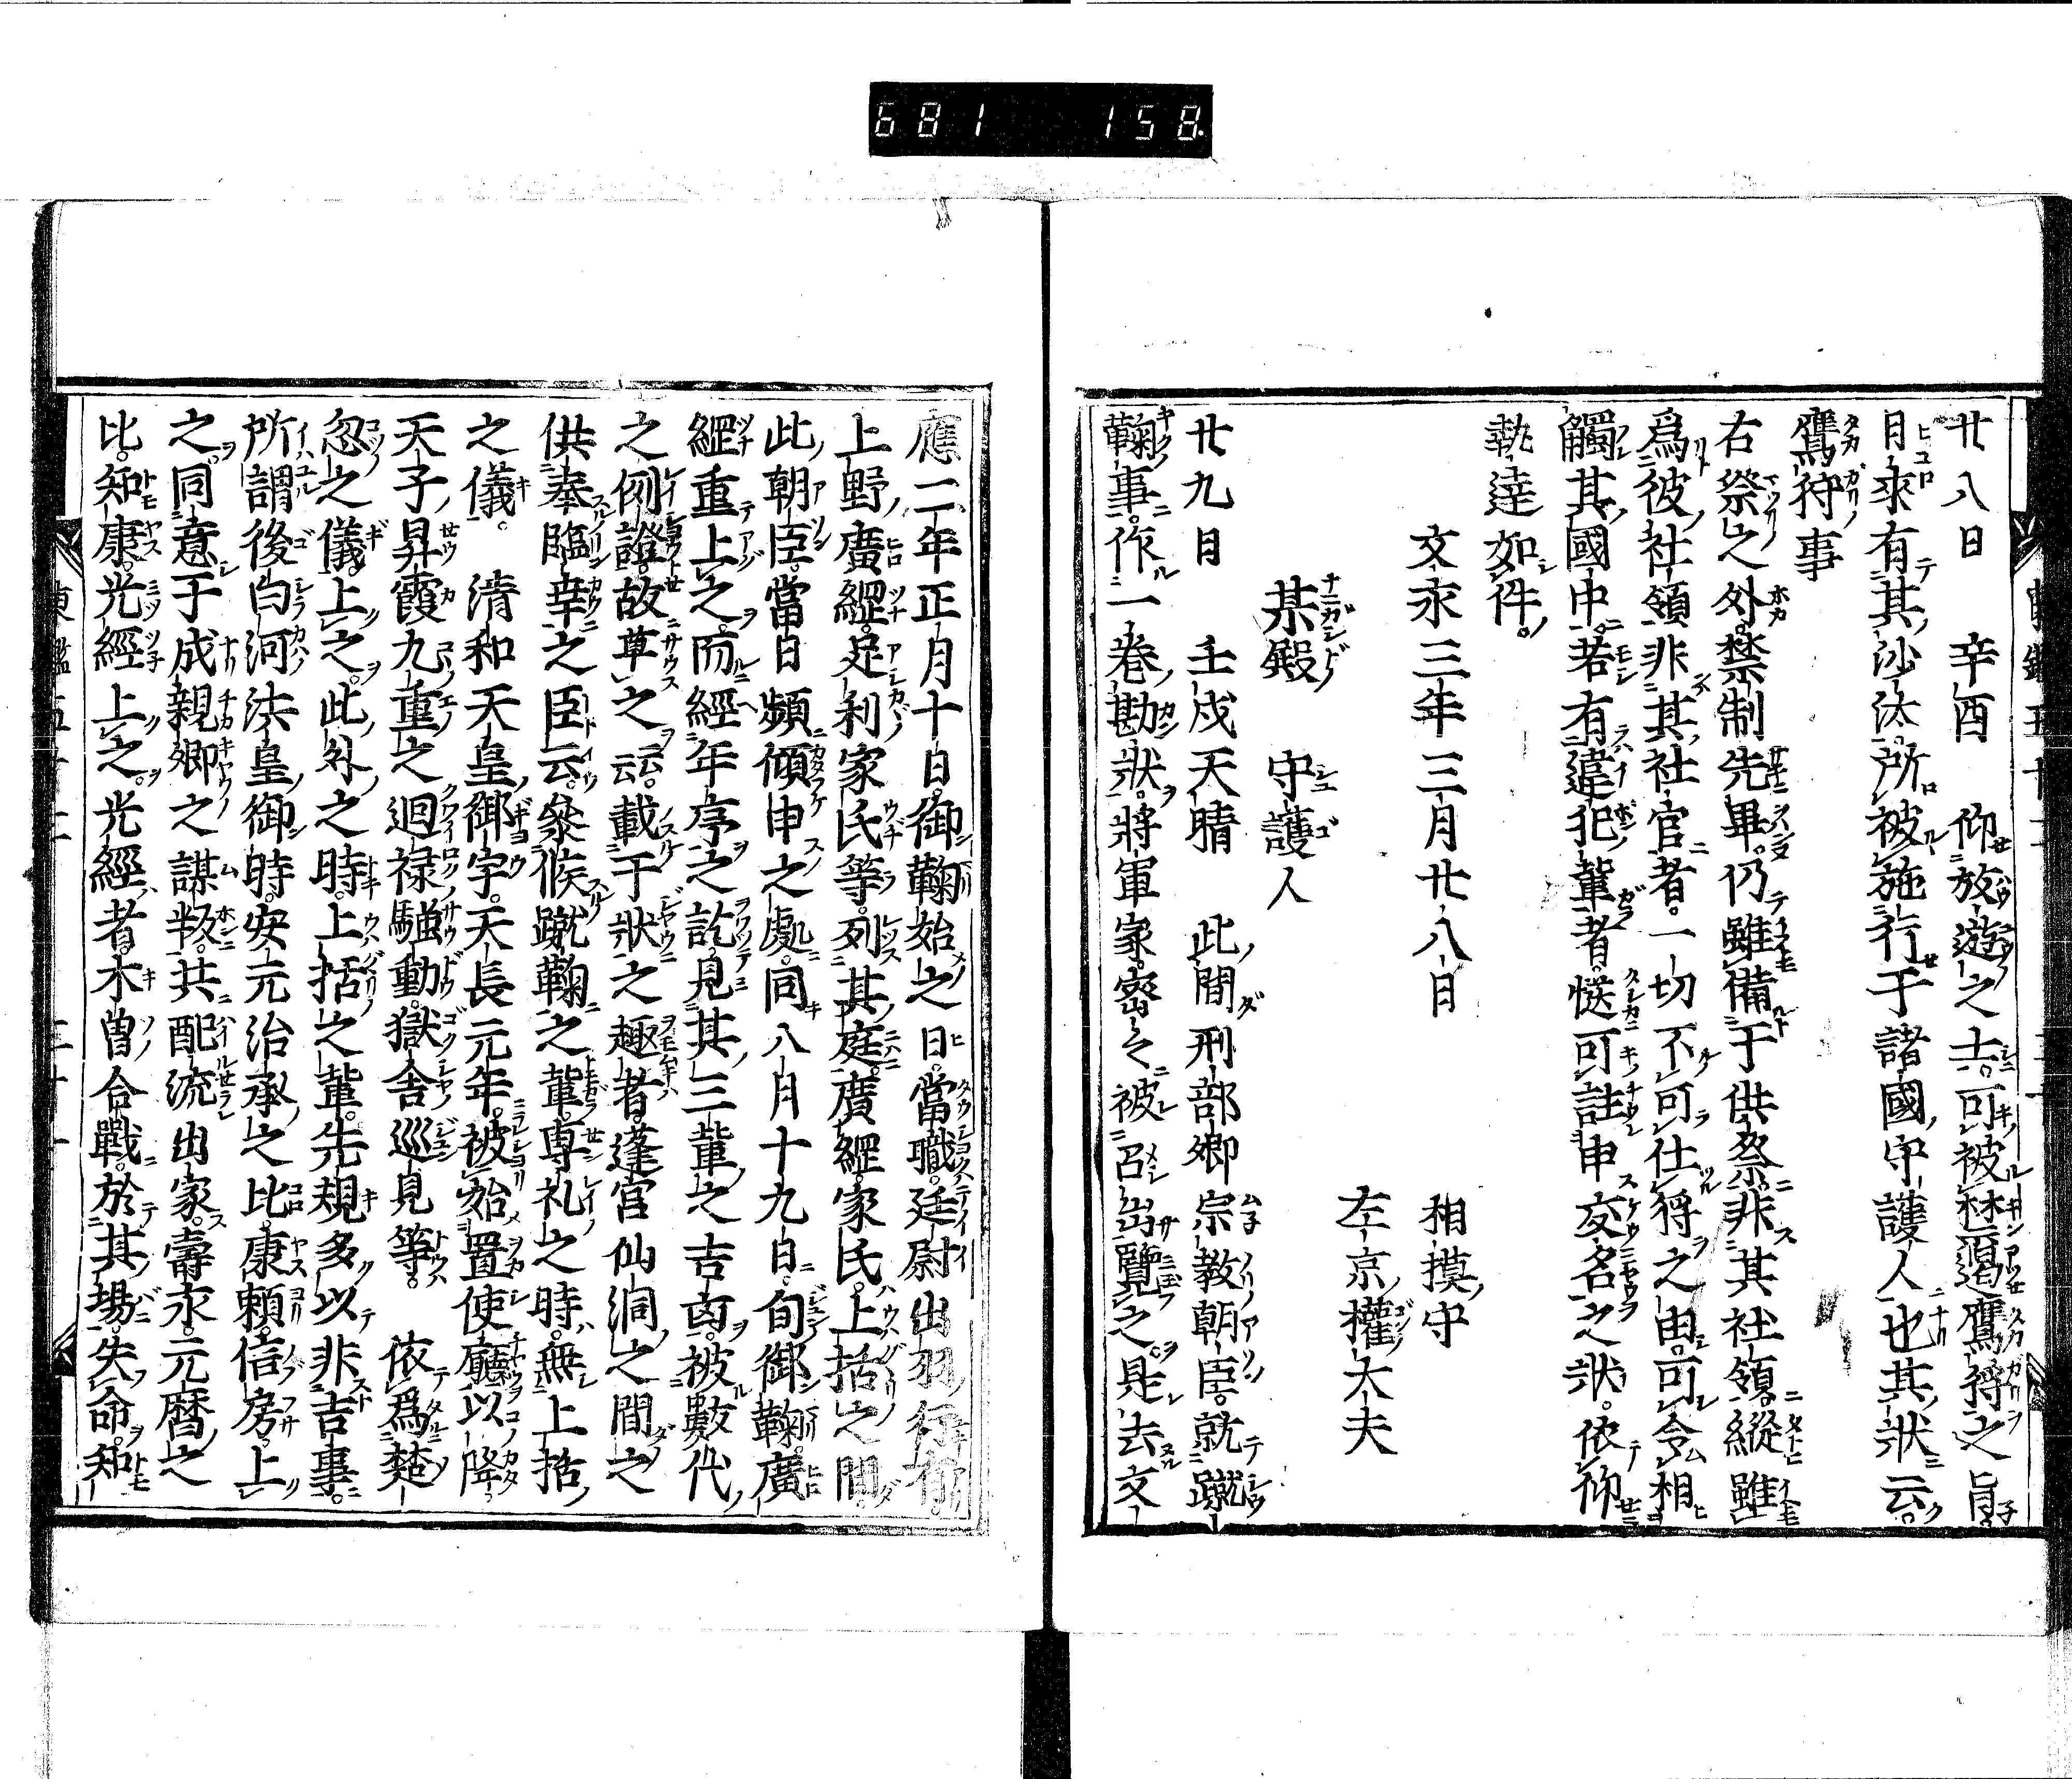 681 158.
廿八日 辛酉 仰放遊之士。可被禁遏鷹狩之旨。
日來有其沙汰。所被施行于諸國守護人也其狀云。
鷹狩事
右祭之外。禁制先畢。仍雖備于供祭。非其社領。縱雖
爲彼社領非其社官者。一切不可仕狩之由。可令相
觸其國中。若有違犯輩者。慥可註申交名之狀。依仰
執達如件。
文永三年三月廿八日 相摸守
左京權大夫
某殿 守護人
廿九日 壬戌天晴 此間刑部卿宗教朝臣。就蹴
鞠事。作一卷勘狀。將軍家。密々被召出覽之。是去文
應二年正月十日。御鞠始之日。當職。廷尉出羽行有。
上野廣綱。足利家氏等。列其庭。廣綱。家氏。上括之間。
此朝臣。當日頻傾申之處。同八月十九日。旬御鞠。廣
綱重上之。而經年序之訖。見其三輩之吉凶。被數代
之例證。故草之云云。載于狀之趣者。蓬宮仙洞之間之
供奉臨幸之臣云。參候蹴鞠之輩。專礼之時。無上括
之儀。 清和天皇御宇。天長元年。被始置使廳以降。
天子昇霞九重之迴祿騷動。獄舎巡見等。 依爲楚
忽之儀。上之。此外之時。上括之輩。先規多以非吉事。
所謂後白河法皇御時。安元治承之比。康賴。信房。上
之。同意于成親卿之謀叛。共配流出家。壽永。元曆之
比。知康。光經上之。光經者。木曾合戰。於其場。失命。知